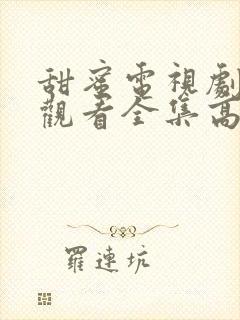 甜蜜電視劇
觀看全集高
羅連坑